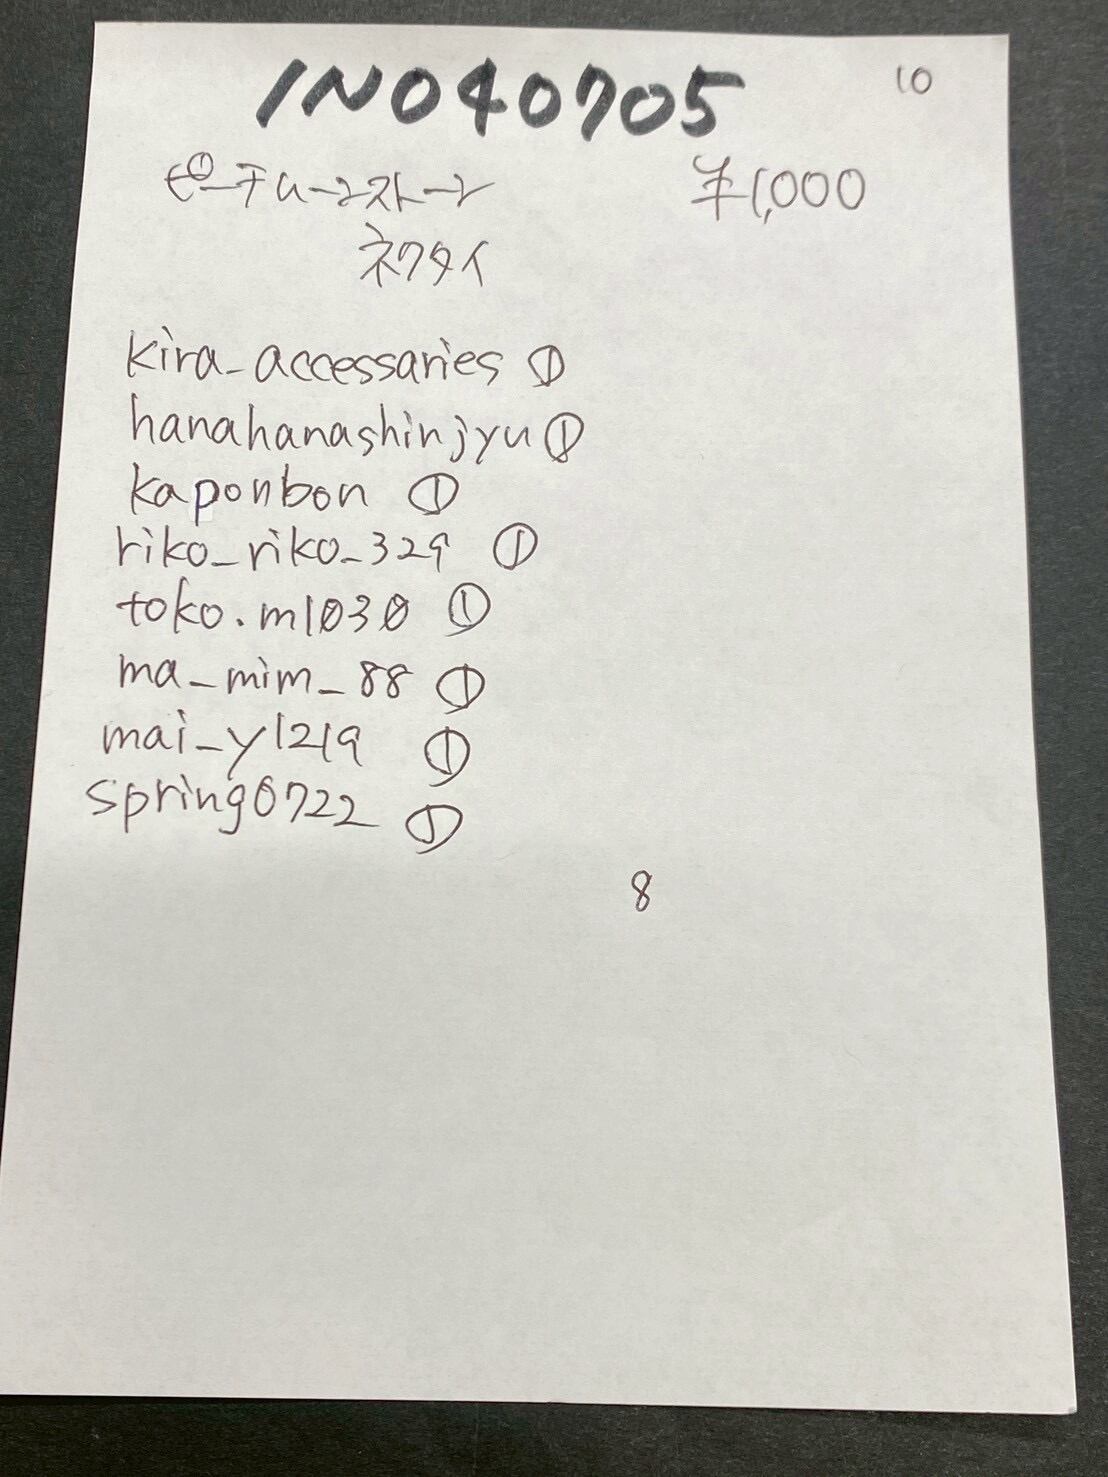 IN040705 10
ピーチムーンストーン ¥1,000
ネクタイ
kira_accessaries ①
hanahanashinjyu ①
kaponbon ①
riko_riko_329 ①
toko.m1030 ①
ma_mim_88 ①
mai_y1219 ①
spring0722 ①
8